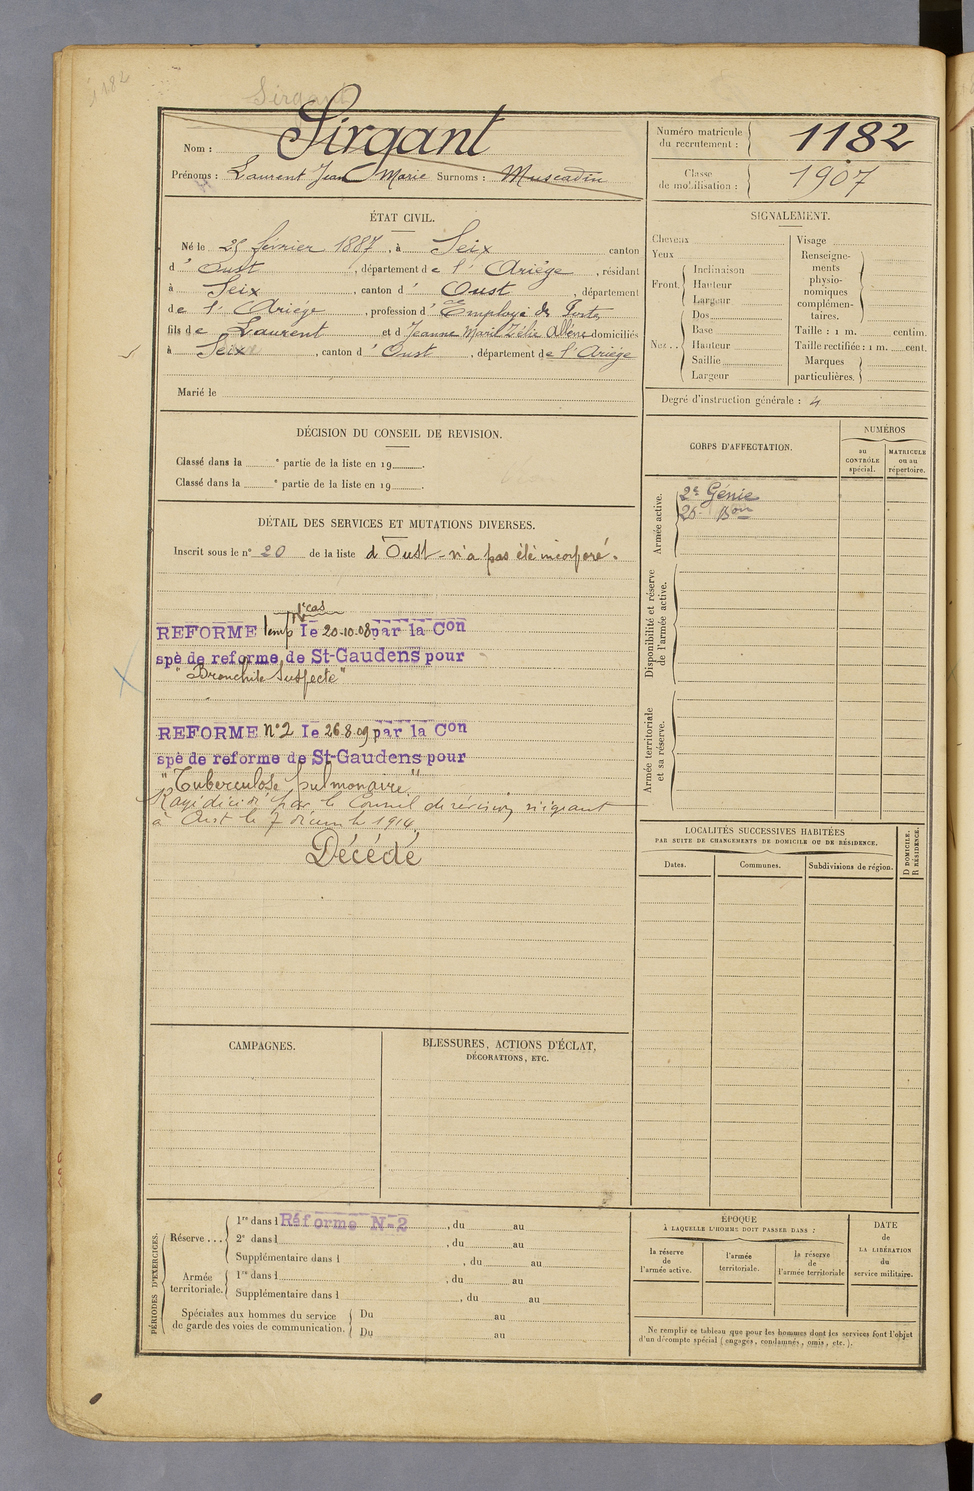 1182
Sirgant
Nom : Sirgant
Prénoms : Laurent Jean Marie Surnoms : Muscadin
Numéro matricule
du recrutement : 1182
Classe
de mobilisation : 1907
ÉTAT CIVIL.
Né le 25 février 1887, à Seix canton
d' Oust, département de l'Ariège, résidant
à Seix, canton d' Oust, département
de l'Ariége, profession d' Employé des Postes
fils de Laurent et d Jeanne Marie Zélie domiciliés
à Seix, canton d' Oust, département de l'Ariége
Marié le
SIGNALEMENT.
Cheveux
Yeux
Front.
Inclinaison
Hauteur
Largeur
Nez..
Dos
Base
Hauteur
Saillie
Largeur
Visage
Renseigne-
ments
physio-
nomiques
complémen-
taires.
Taille : 1 m. centim.
Taille rectifiée : 1 m. cent.
Marques
particulières.
Degré d'instruction générale : 4
DÉCISION DU CONSEIL DE REVISION.
Classé dans la e partie de la liste en 19 .
Classé dans la e partie de la liste en 19 .
DÉTAIL DES SERVICES ET MUTATIONS DIVERSES.
Inscrit sous le n° 20 de la liste d'Oust - n'a pas été incorporé.
1er cas
REFORME temp le 20-10-08 par la Con
spè de reforme de St-Gaudens pour
"Bronchite suspecte"
REFORME n°2 le 26.8.09 par la Con
spè de reforme de St-Gaudens pour
"Tuberculose pulmonaire"
par le Conseil de révision siégeant
à Oust le 7 décembre 1914.
Décédé
CORPS D'AFFECTATION.
NUMÉROS
au
CONTRÔLE
spécial.
MATRICULE
ou au
répertoire.
Armée active.
2e Génie
26e Bon
Disponibilité et réserve
de l'armée active.
Armée territoriale
et sa réserve.
LOCALITÉS SUCCESSIVES HABITÉES
PAR SUITE DE CHANGEMENTS DE DOMICILE OU DE RÉSIDENCE.
D DOMICILE.
R RÉSIDENCE.
Dates.
Communes.
Subdivisions de région.
CAMPAGNES.
BLESSURES, ACTIONS D'ÉCLAT,
DÉCORATIONS, ETC.
PÉRIODES D'EXERCICES.
Réserve ...
1re dans l Réforme N-2, du au
2e dans l , du au
Supplémentaire dans l , du au
Armée
territoriale.
1re dans l , du au
Supplémentaire dans l , du au
Spéciales aux hommes du service
de garde des voies de communication.
Du au
Du au
ÉPOQUE
À LAQUELLE L'HOMME DOIT PASSER DANS :
la réserve
de
l'armée active.
l'armée
territoriale.
la réserve
de
l'armée territoriale
DATE
de
LA LIBÉRATION
du
service militaire.
Ne remplir ce tableau que pour les hommes dont les services font l'objet
d'un décompte spécial (engagés, condamnés, omis, etc.).